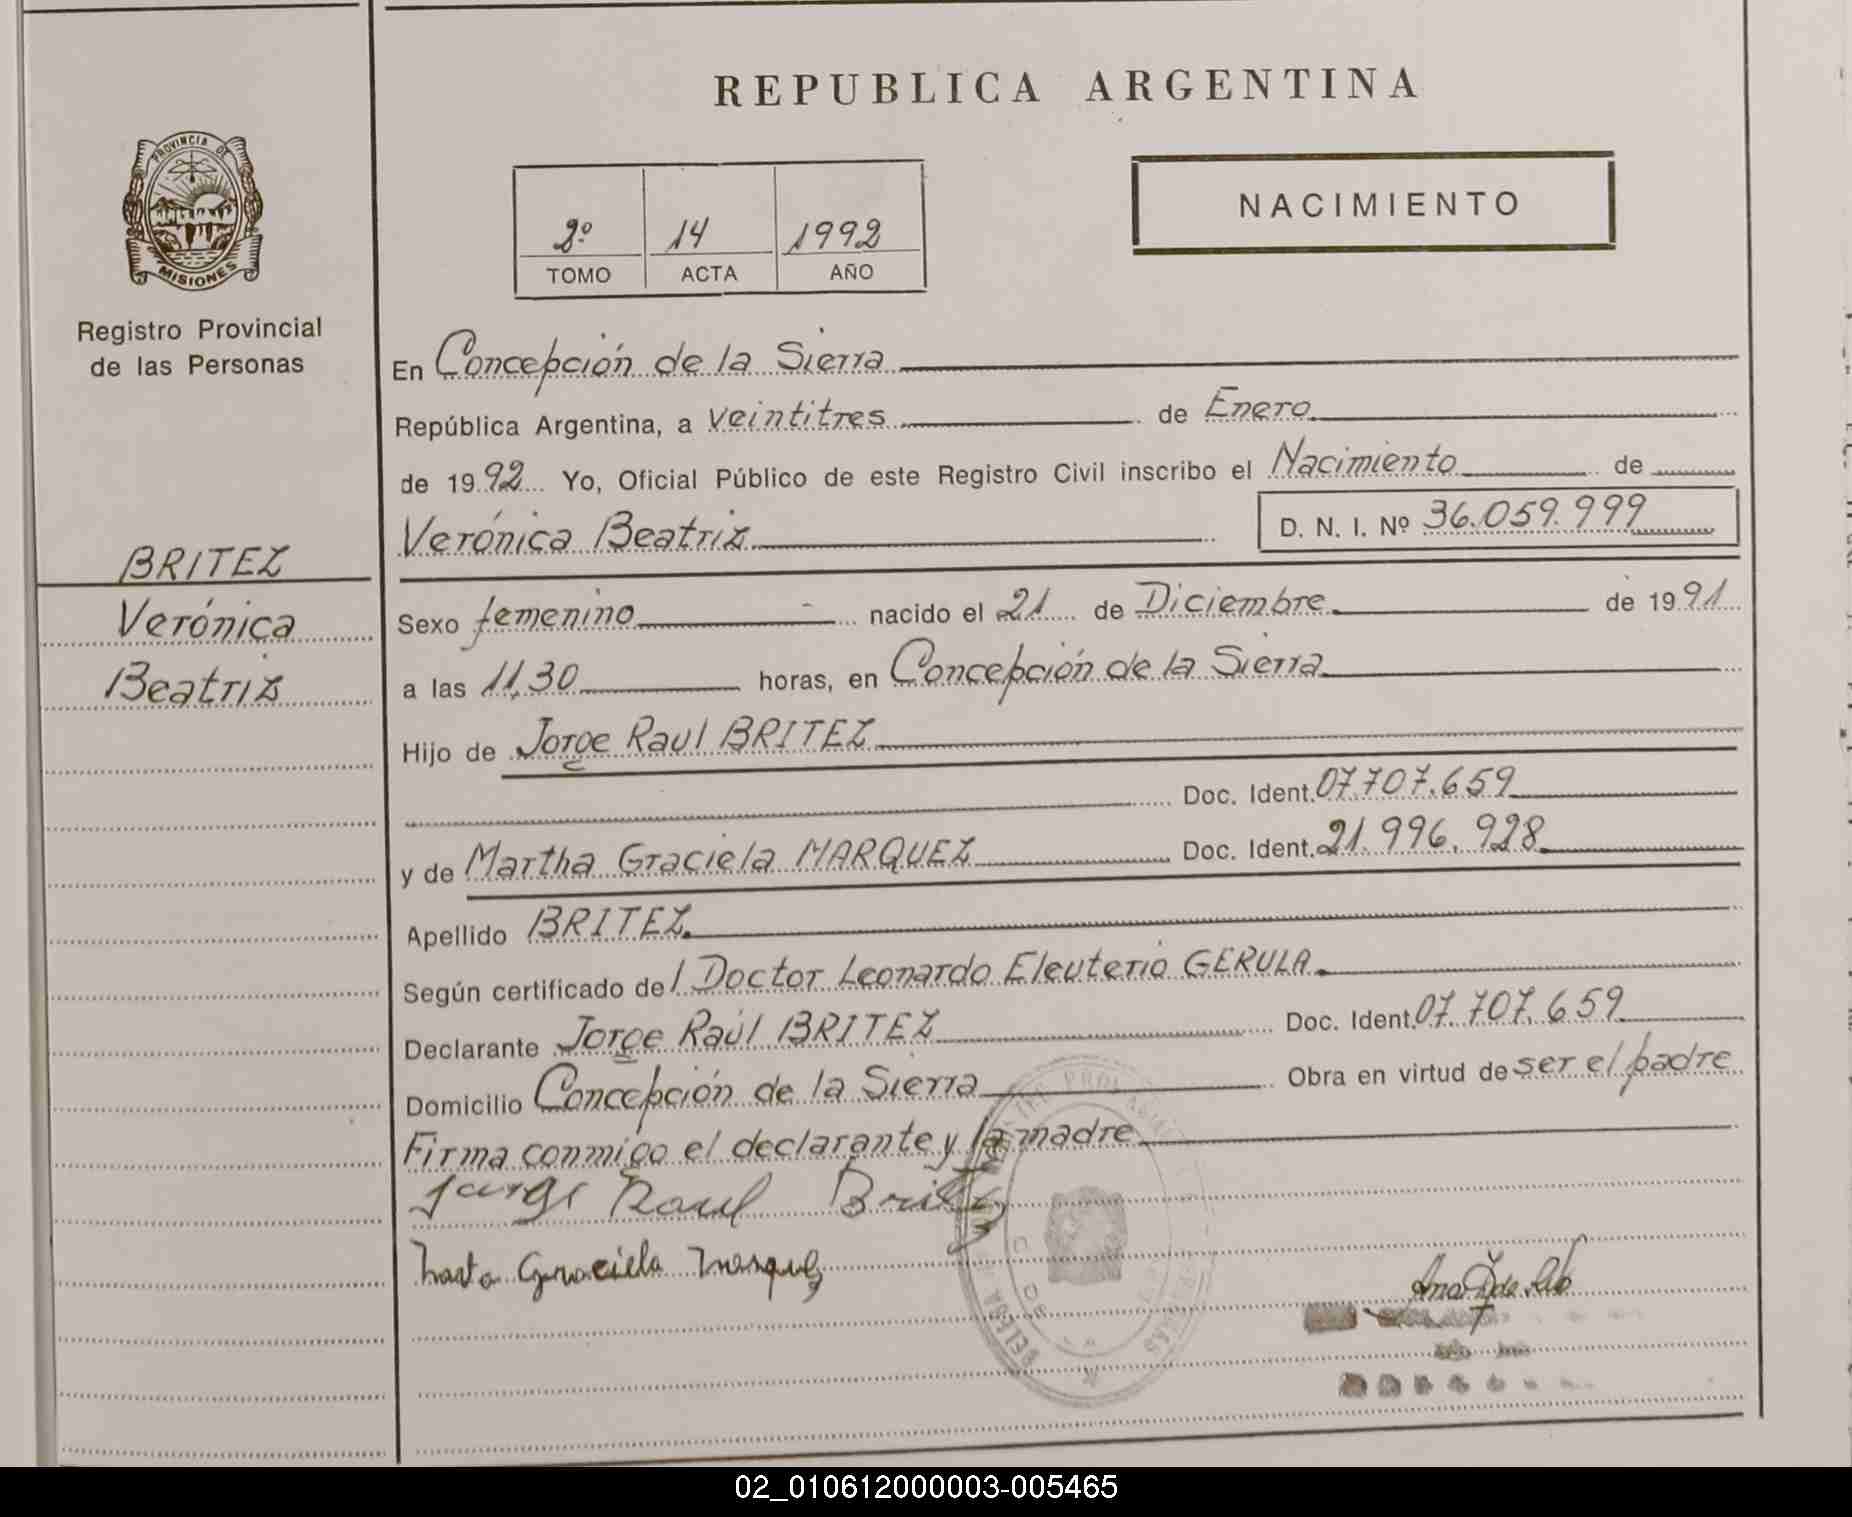 REPUBLICA ARGENTINA
PROVINCIA DE
MISIONES
Registro Provincial
de las Personas
NACIMIENTO
2º 14 1992
TOMO ACTA AÑO
En Concepción de la Sierra
República Argentina, a veintitres de Enero
de 1992 Yo, Oficial Público de este Registro Civil inscribo el Nacimiento de
Verónica Beatriz D. N. I. Nº 36.059.999
BRITEZ
Verónica
Beatriz
Sexo femenino nacido el 21 de Diciembre de 1991
a las 11,30 horas, en Concepción de la Sierra
Hijo de Jorge Raul BRITEZ
Doc. Ident. 07.707.659
y de Martha Graciela MARQUEZ Doc. Ident. 21.996.928
Apellido BRITEZ
Según certificado del Doctor Leonardo Eleuterio GERULA
Declarante Jorge Raúl BRITEZ Doc. Ident. 07.707.659
Domicilio Concepción de la Sierra Obra en virtud de ser el padre
Firma conmigo el declarante y la madre
Jorge Raul Britez
Graciela
02_010612000003-005465